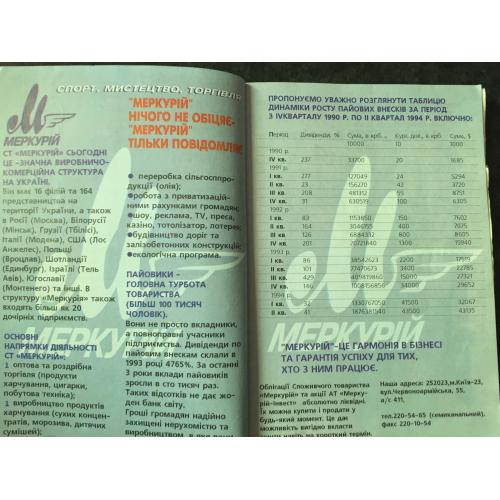 СПОРТ, МИСТЕЦТВО, ТОРГІВЛЯ
МЕРКУРІЙ
СТ «МЕРКУРІЙ» СЬОГОДНІ
ЦЕ -ЗНАЧНА ВИРОБНИЧО-
КОМЕРЦІЙНА СТРУКТУРА
НА УКРАЇНІ.
Він має 16 філій та 164
представництва на
території України, а також
в Росії (Москва), Білорусії
(Мінськ), Грузії (Тбілісі),
Італії (Модена), США (Лос
Анжелес), Польщі
(Вроцлав), Шотландії
(Единбург), Ізраїлі (Тель
Авів), Югославії
(Монтенего) та інші. В
структуру «Меркурія» також
входять більш як 20
дочірніх підприємств.
ОСНОВНІ
НАПРЯМКИ ДІЯЛЬНОСТІ
СТ «МЕРКУРІЙ»:
1 оптова та роздрібна
торгівля (продукти
харчування, цигарки,
побутова техніка);
виробництво продуктів
харчування (сухих концент-
ратів, морозива, дитячих
сумішей);
"МЕРКУРІЙ"
НІЧОГО НЕ ОБІЦЯЄ-
"МЕРКУРІЙ"
ТІЛЬКИ ПОВІДОМЛЯЄ
● переробка сільгосппро-
дукції (олія);
● робота з приватизацій-
ними рахунками громадян;
● шоу, реклама, TV, преса,
казино, тотолізатор, лотереї;
● будівництво доріг та
залізобетонних конструкцій;
● екологічна програма.
ПАЙОВИКИ –
ГОЛОВНА ТУРБОТА
ТОВАРИСТВА
(БІЛЬШ 100 ТИСЯЧ
ЧОЛОВІК).
Вони не просто вкладники,
а повноправні учасники
підприємства. Дивіденди по
пайовим внескам склали в
1993 році 4765%. За останні
3 роки вклади пайовиків
зросли в сто тисяч раз.
Таких відсотків не дає жо-
ден банк світу.
Гроші громадян надійно
захищені нерухомістю та
ПРОПОНУЄМО УВАЖНО РОЗГЛЯНУТИ ТАБЛИЦЮ
ДИНАМІКИ РОСТУ ПАЙОВИХ ВНЕСКІВ ЗА ПЕРІОД
З IVКВАРТАЛУ 1990 Р. ПО II КВАРТАЛ 1994 Р. ВКЛЮЧНО:
Період Дивіденди, % Сума, в крб., Курс дол., в крб. Сума, $
10000 10 1000
1990 р.
IV кв. 237 33700 20 1685
1991 р.
I кв. 277 127049 24 5294
II кв. 23 156270 42 3720
III кв. 208 481312 55 8751
IV кв. 31 630519 100 6305
1992 р.
I кв. 83 1153850 150 7602
II кв. 164 3046155 400 7615
III кв. 126 6884332 800 8605
IV кв. 201 20721840 1300 15940
1993 р.
I кв. 86 38542623 2200 17519
II кв. 101 77470673 3400 22785
III кв. 439
IV кв. 146 34000 29652
1994 р.
I кв. 32 1330767050 41500 32067
II кв. 41 1876381540 43500 43135
МЕРКУРІЙ
"МЕРКУРІЙ"-ЦЕ ГАРМОНІЯ В БІЗНЕСІ
ТА ГАРАНТІЯ УСПІХУ ДЛЯ ТИХ,
ХТО З НИМ ПРАЦЮЄ.
Облігації Споживчого товариства
«Меркурій» та акції АТ «Мерку-
рій-Інвест» абсолютно ліквідні.
Їх можна купити і продати у
будь-який момент. Це дає
можливість вигідно вкласти
Наша адреса: 252023,м.Київ-23,
вул.Червоноармійська, 55,
а/с 411,
тел.220-54-65 (семиканальний),
факс 220-10-54